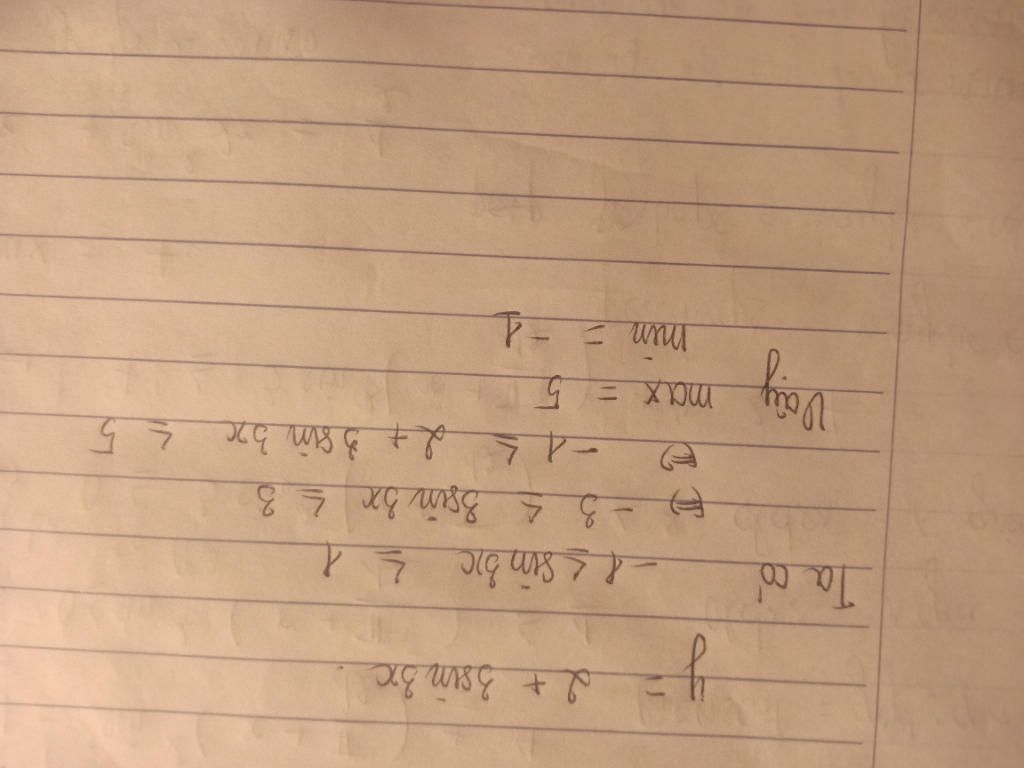 y = 2 + 3sin 3x.
Ta có -1 ≤ sin 3x ≤ 1
⇔ -3 ≤ 3sin 3x ≤ 3
⇔ -1 ≤ 2 + 3sin 3x ≤ 5
Vậy max = 5
min = -1